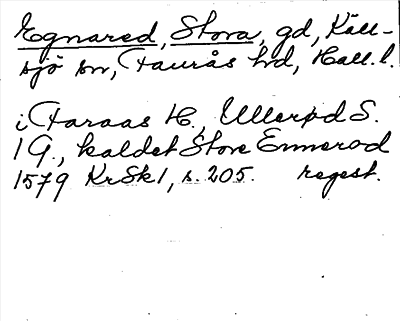 Egnared, Stora, gd, Käll-
sjö sn, Faurås hd, Hall. l.
i Faraas H., Ullerød S.
1 G., kaldet Store Ennerod
1579 KrSk1, s. 205. regest.